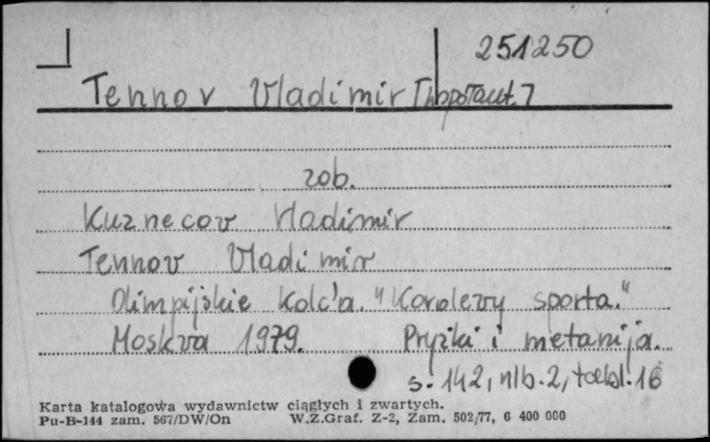 251250
Tennov Vladimir [współaut.]
zob.
Kuznecov Vladimir
Tennov Vladimir
Olimpijskie kolc'a. "Korolevy sporta."
Moskva 1979. Pryžki i metanija.
s. 142, nlb. 2, tabl. 16
Karta katalogowa wydawnictw ciągłych i zwartych.
Pu-B-144 zam. 567/DW/On W.Z.Graf. Z-2, Zam. 502/77, 6 400 000